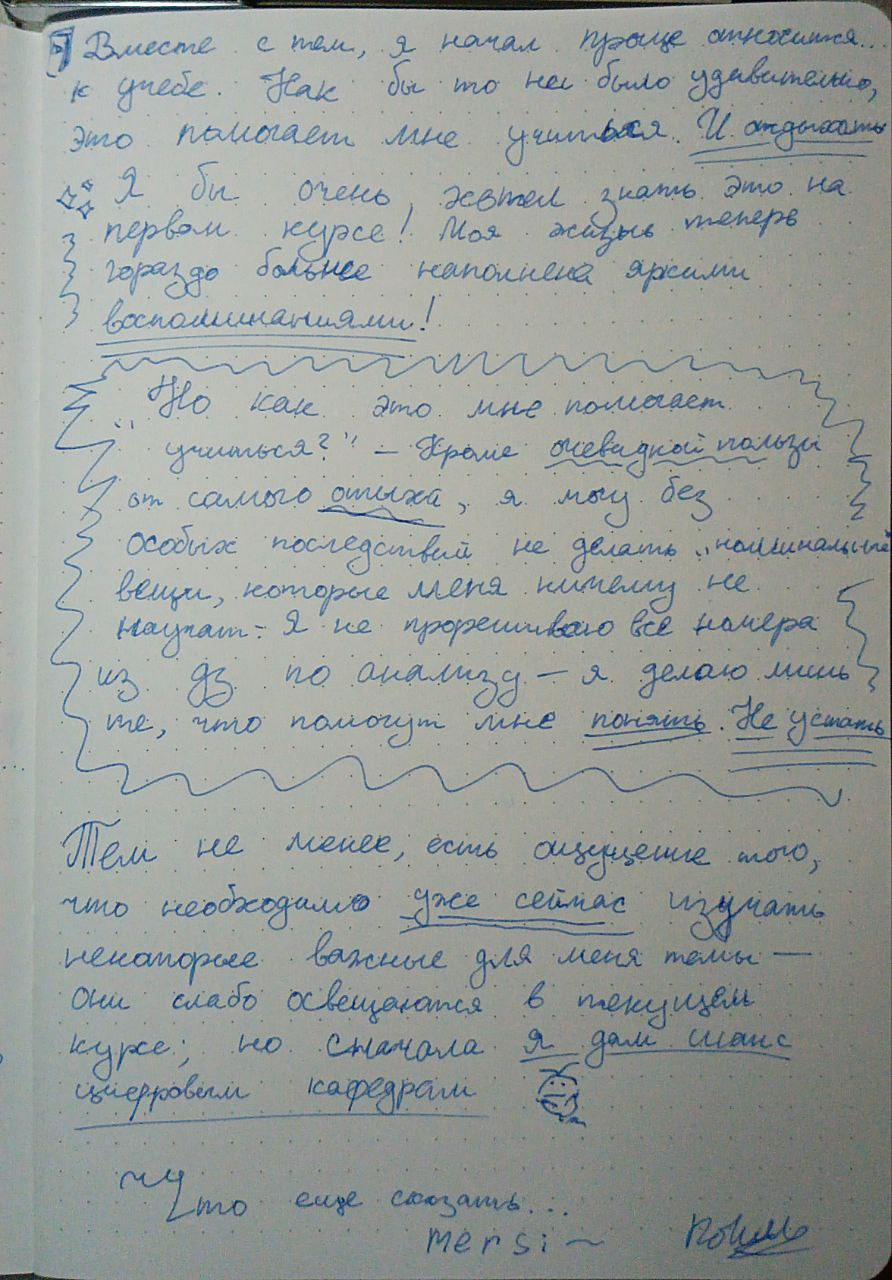 Вместе с тем, я начал проще относится..
к учебе. Как бы то не было удивительно,
это помогает мне учиться. И отдыхать
Я бы очень хотел знать это на
первом курсе! Моя жизнь теперь
гораздо больнее наполнена яркими
воспоминаниями!
„Но как это мне помогает
учиться?" – Кроме очевидной пользы
от самого отыха, я могу без
особых последствий не делать „номинальные"
вещи, которые меня ничему не
научат – Я не прорешиваю все номера
из дз по анализу — я делаю лишь
те, что помогут мне понять. Не устать
Тем не менее, есть ощущение того,
что необходимо уже сейчас изучать
некоторые важные для меня темы —
они слабо освещаются в текущем
курсе; но сначала я дам шанс
цифровым кафедрам
Что еще сказать...
mersi ~